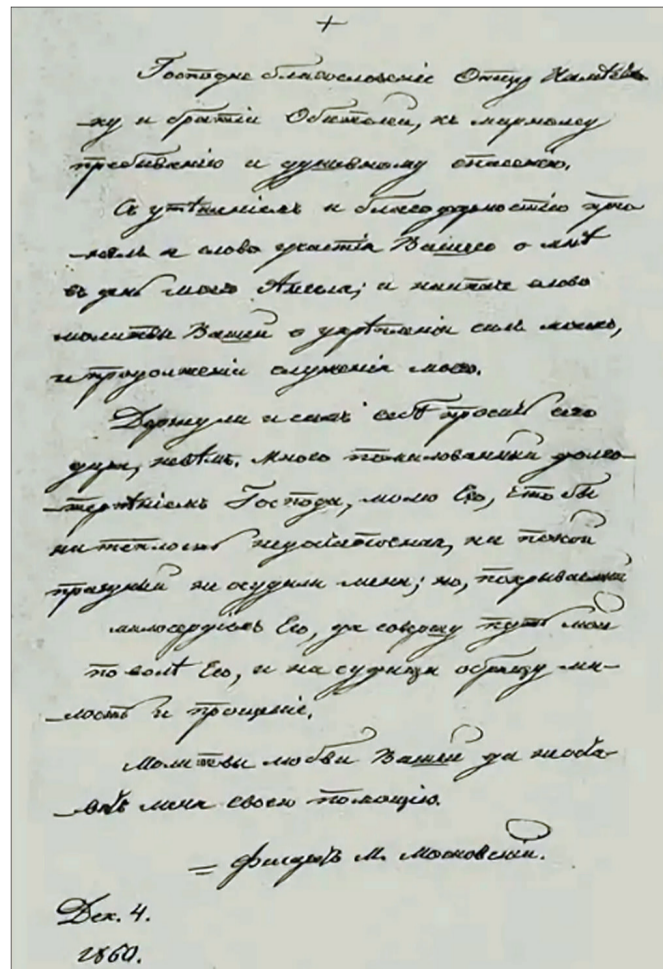 +
Господне благословеніе Отцу
ку и братіи Обители, къ мирному
пребыванію и душевному спасенію.
Съ утѣшеніемъ и благодарностію при
нялъ я слово участія Вашего о мнѣ
въ день моего Ангела; и наипаче слово
молитвы Вашей о укрѣпленіи силъ моихъ,
и продолженіи служенія моего.
Дерзну ли и самъ себѣ просить сего
дара, невѣмъ. Много помилованный долго-
терпѣніемъ Господа, молю Его, что бы
ни теплость недостаточная, ни покой
праздный не осудили меня; но, покрываемый
милосердіемъ Его, да совершу путь мой
по волѣ Его, и на судищи обрящу ми-
лость и прощеніе.
Молитвы любви Вашей да неоста-
вятъ меня своею помощію.
= Филаретъ М. Московскій.
Дек. 4.
1860.